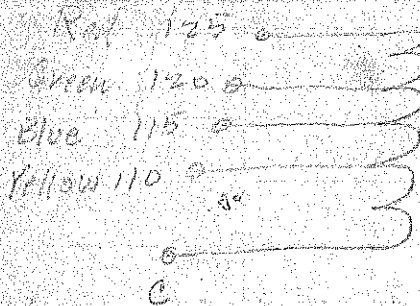 Red 125
Green 120
Blue 115
Yellow 110
C